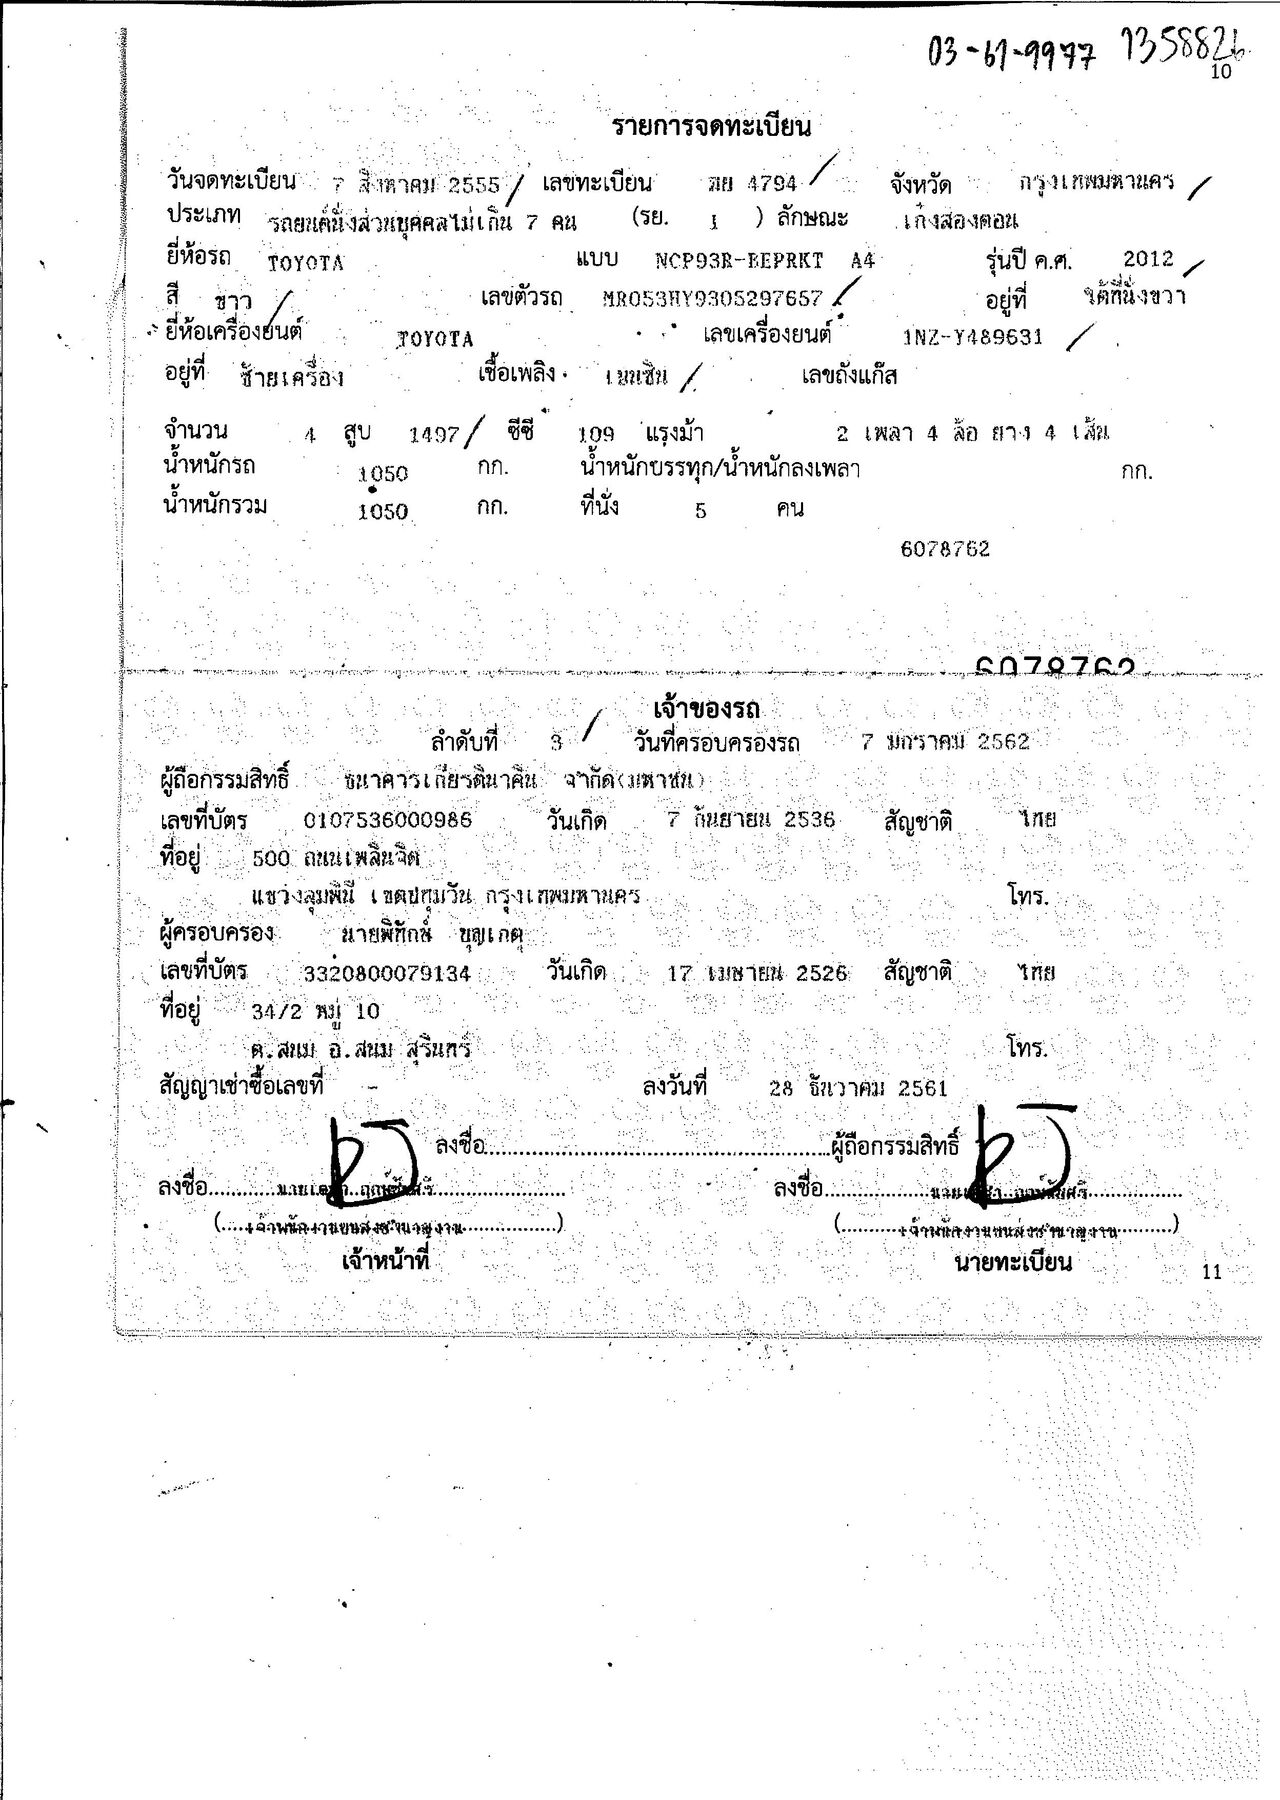 03-61-9977 1358826
10
รายการจดทะเบียน
วันจดทะเบียน 7 สิงหาคม 2555 เลขทะเบียน 4794 จังหวัด กรุงเทพมหานคร
ประเภท รถยนต์นั่งส่วนบุคคลไม่เกิน 7 คน (รย. 1 ) ลักษณะ เก๋งสองตอน
ยี่ห้อรถ TOYOTA แบบ NCP93R-BEPRKT A4 รุ่นปี ค.ศ. 2012
สี ขาว เลขตัวรถ MR053HY9305297657 อยู่ที่ ใต้ที่นั่งขวา
ยี่ห้อเครื่องยนต์ TOYOTA เลขเครื่องยนต์ 1NZ-Y489631
อยู่ที่ ซ้ายเครื่อง เชื้อเพลิง เบนซิน เลขถังแก๊ส
จำนวน 4 สูบ 1497 ซีซี 109 แรงม้า 2 เพลา 4 ล้อ ยาง 4 เส้น
น้ำหนักรถ 1050 กก. น้ำหนักบรรทุก/น้ำหนักลงเพลา กก.
น้ำหนักรวม 1050 กก. ที่นั่ง 5 คน
6078762
6078762
เจ้าของรถ
ลำดับที่ 3 วันที่ครอบครองรถ 7 มกราคม 2562
ผู้ถือกรรมสิทธิ์ ธนาคารเกียรตินาคิน จำกัด(มหาชน)
เลขที่บัตร 0107536000986 วันเกิด 7 กันยายน 2536 สัญชาติ ไทย
ที่อยู่ 500 ถนนเพลินจิต
แขวงลุมพินี เขตปทุมวัน กรุงเทพมหานคร โทร.
ผู้ครอบครอง นายพิทักษ์ บุญเกตุ
เลขที่บัตร 3320800079134 วันเกิด 17 เมษายน 2526 สัญชาติ ไทย
ที่อยู่ 34/2 หมู่ 10
ต.สนม อ.สนม สุรินทร์ โทร.
สัญญาเช่าซื้อเลขที่ - ลงวันที่ 28 ธันวาคม 2561
ลงชื่อ ผู้ถือกรรมสิทธิ์
ลงชื่อ ลงชื่อ
(เจ้าพนักงานขนส่งชำนาญงาน) (เจ้าพนักงานขนส่งชำนาญงาน)
เจ้าหน้าที่ นายทะเบียน
11